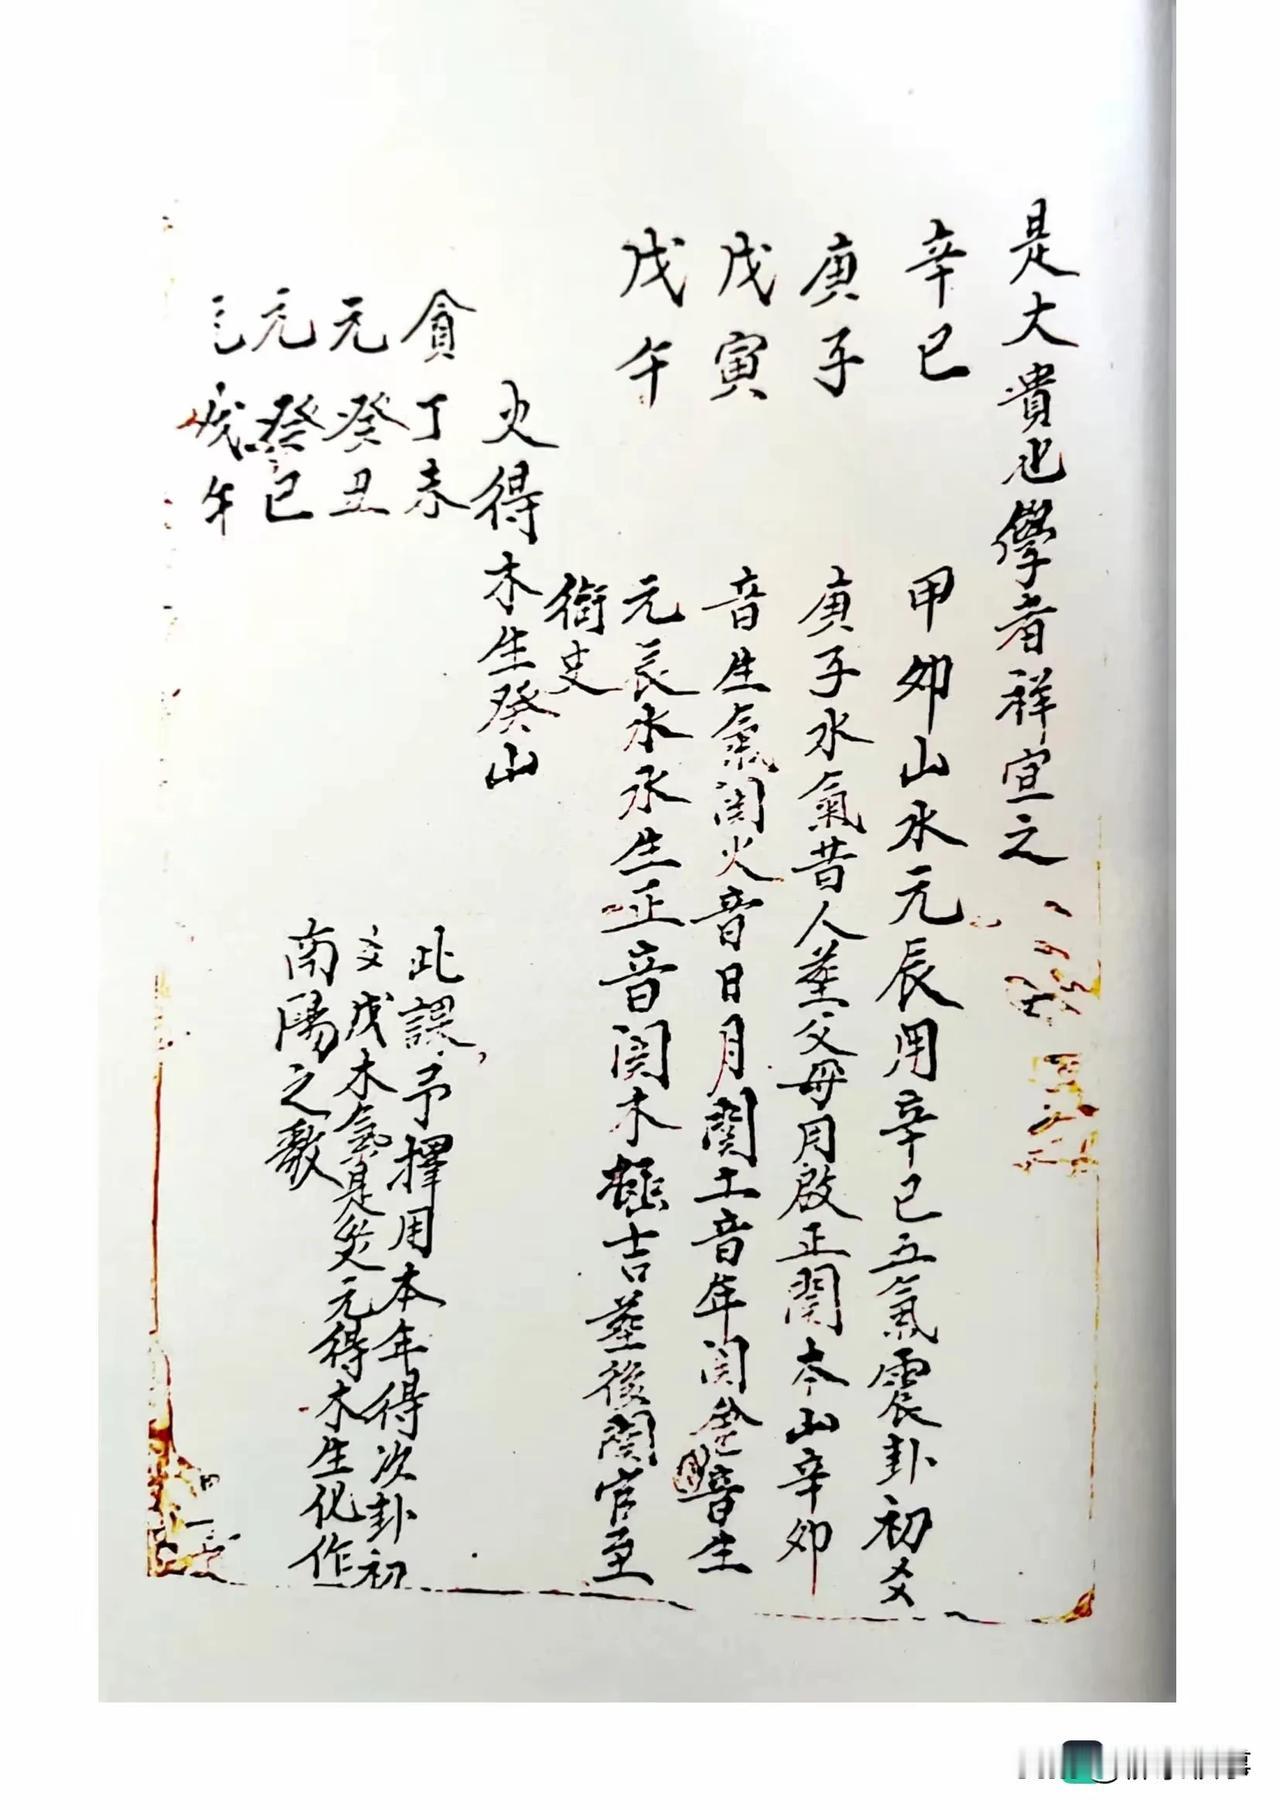 是大貴也學者祥宣之
辛巳 甲卯山水元辰用辛巳五氣震卦初爻
庚子 庚子水氣昔人葬父母用啟正関本山辛卯
戊寅 音生氣関火音日月関土音年関金音生
戊午 元辰水永生正音関木極吉葬後関官至
衙吏
火得木生癸山
貪丁未 此課予擇用本年得次卦初
元癸丑 爻戊木氣是炁元得木生化作
元癸巳 南陽之
戊午